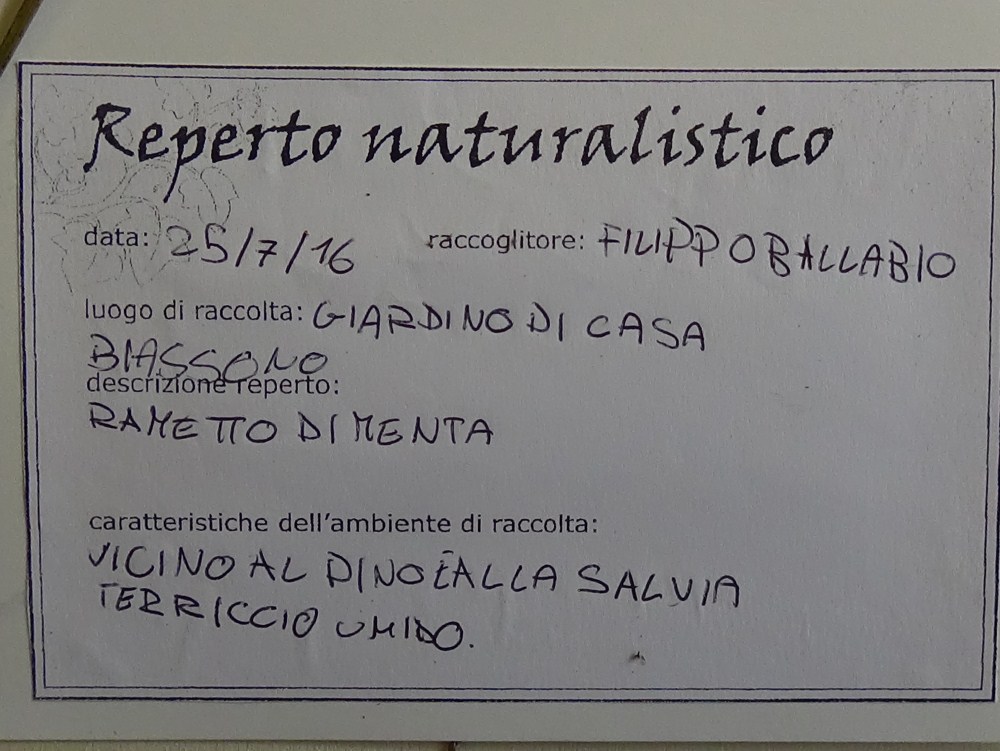 Reperto naturalistico
data: 25/7/16 raccoglitore: FILIPPO BALLABIO
luogo di raccolta: GIARDINO DI CASA
BIASSONO
descrizione reperto:
RAMETTO DI MENTA
caratteristiche dell'ambiente di raccolta:
VICINO AL PINO E ALLA SALVIA
TERRICCIO UMIDO.